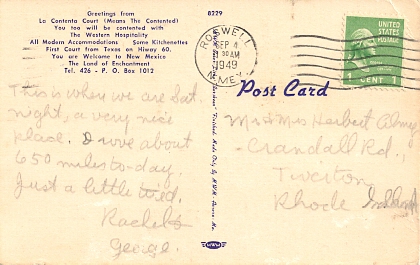 Greetings from
La Contenta Court (Means The Contented)
You too will be contented with
The Western Hospitality
All Modern Accommodations Some Kitchenettes
First Court from Texas on Hiway 60.
You are Welcome to New Mexico
The Land of Enchantment
Tel. 426 - P. O. Box 1012
8229
ROSWELL
SEP 4
30 AM
1949
N. MEX.
UNITED STATES
POSTAGE
1 CENT 1
Post Card
This is where we are Sat.
night, a very nice
place. Drove about
650 miles to-day.
Just a little tired.
Rachel &
George.
Mr & Mrs Herbert Almy
Crandall Rd.,
Tiverton
Rhode Island
MWM